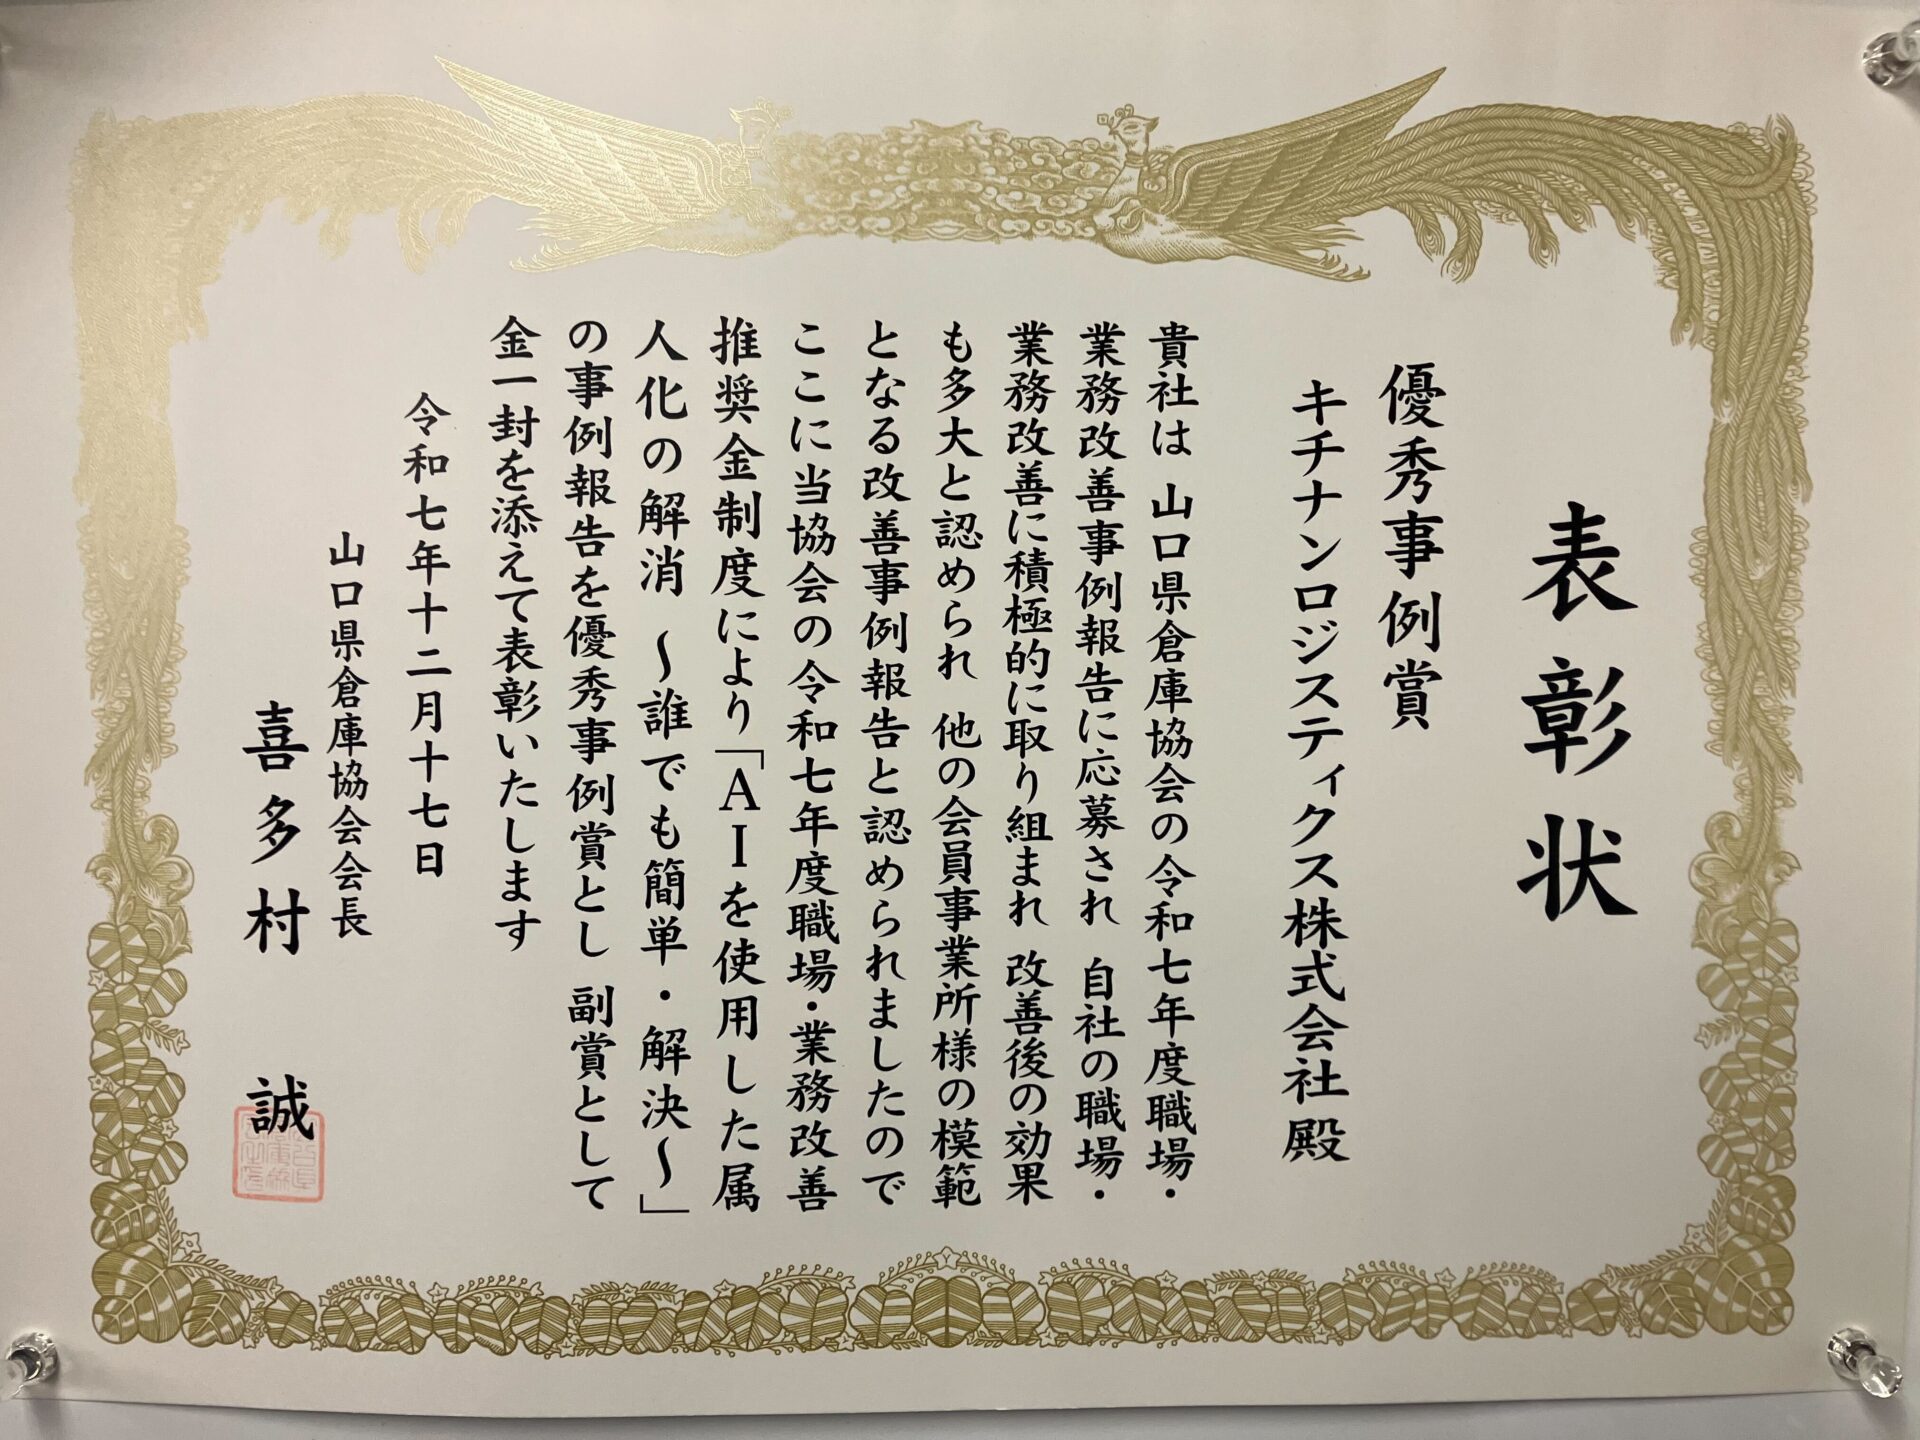 表彰状
優秀事例賞
キチナンロジスティクス株式会社 殿
貴社は 山口県倉庫協会の令和七年度職場・
業務改善事例報告に応募され 自社の職場・
業務改善に積極的に取り組まれ 改善後の効果
も多大と認められ 他の会員事業所様の模範
となる改善事例報告と認められましたので
ここに当協会の令和七年度職場・業務改善
推奨金制度により「AIを使用した属
人化の解消 ～誰でも簡単・解決～」
の事例報告を優秀事例賞とし 副賞として
金一封を添えて表彰いたします
令和七年十二月十七日
山口県倉庫協会会長
喜多村 誠